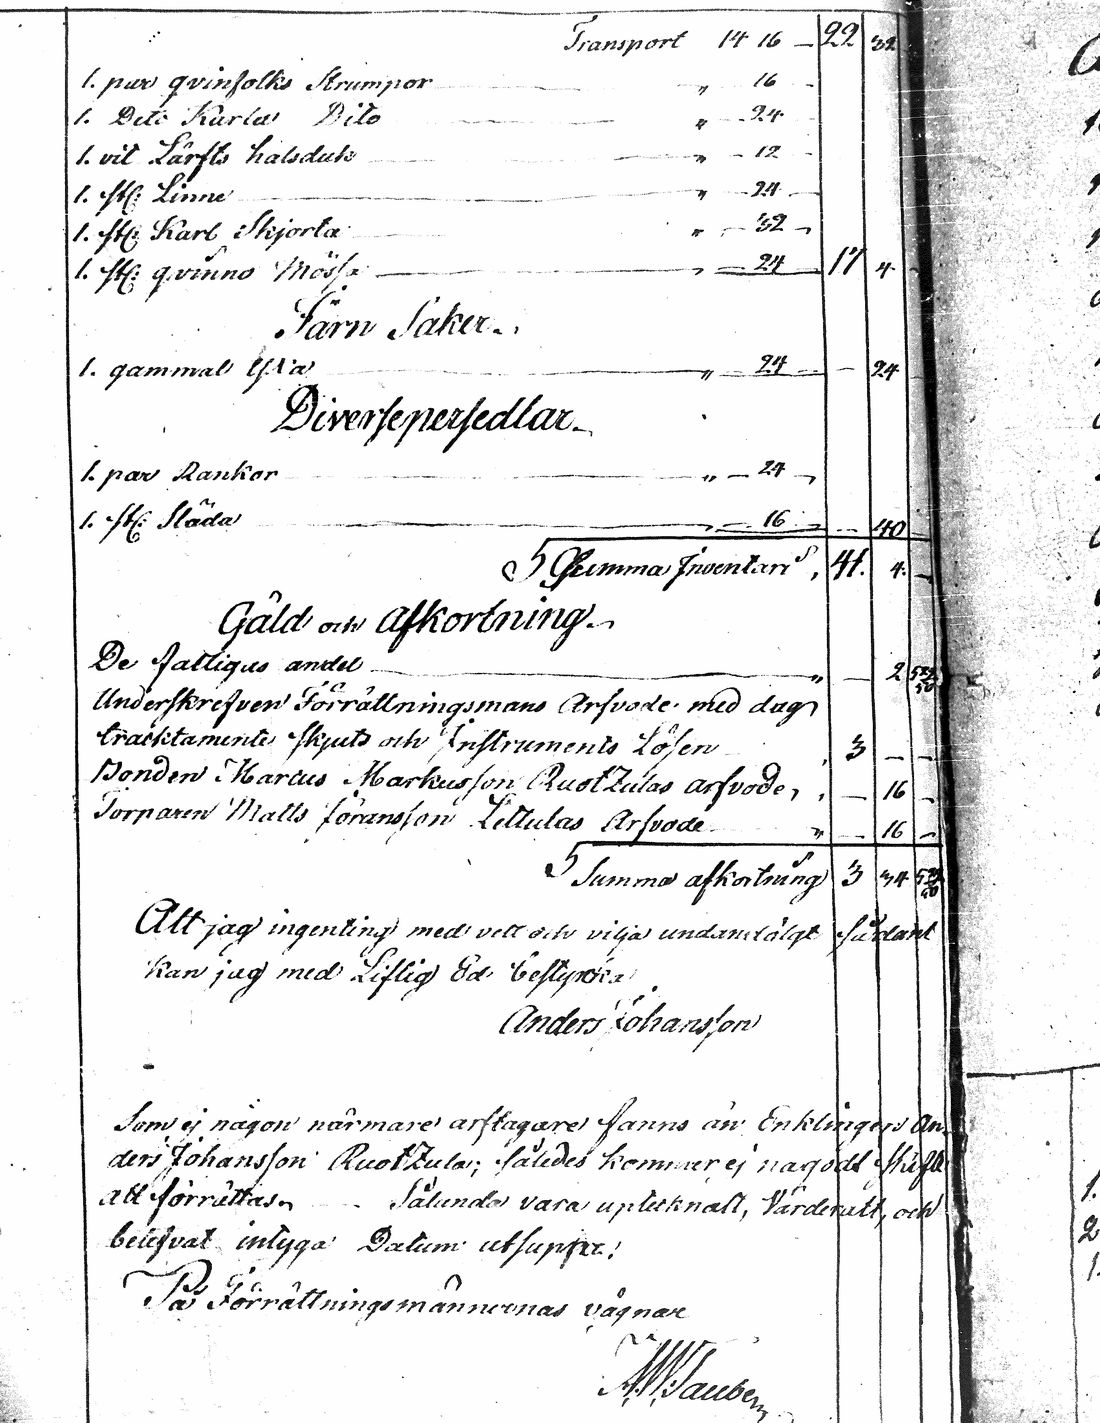 Transport 14 16 — 22 32
1. par qvinfolks Strumpor „ 16
1. Dito Karla Dito „ — 24
1. vit Lärfts halsduk „ — 12
1. st: Linne „ — 24
1. st: Karl Skjorta „ — 32
1. st: qvinno Mössa „ — 24 17 4
Järn Saker
1. gammal Yxa „ — 24 — 24
Diversepersedlar
1. par Rankor „ — 24
1. st: Släda „ — 16 — 40
Summa Inventarii 41. 4. —
Gäld och Afkortning
De fattigas andel „ — 2
Underskrefven Förrättningsmans Arfvode med dag
tracktamente skjuts och Instruments Lösen 3 — —
Bonden Marcus Markusson Ruotzulas arfvode, — 16 —
Torparen Matts Göransson Arfvode „ — 16 —
Summa afkortning 3 34
Att jag ingenting med vett och vilja undandölgt sådant
kan jag med Liflig Ed bestyrka
Anders Johansson
Som ej någon närmare arftagare fanns än Enklingen An-
ders Johansson Ruotzula; således kommer ej något skifte
att förrättas. Sålunda vara upteknatt, Värderatt, och
befefvat intyga Datum utsupra:
På Förrättningsmännernas vägnar